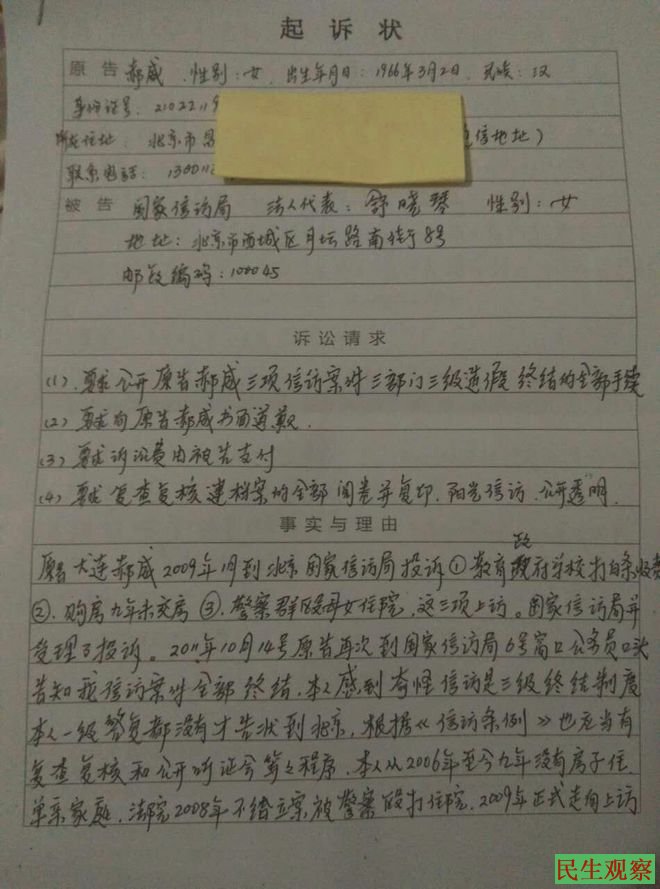 起诉状
原告 郝威 性别:女 出生年月日:1966年3月2日 民族:汉
身份证号:21022119
现在住址:北京市昌 信地址)
联系电话:13001
被告 国家信访局 法人代表:舒晓琴 性别:女
地址:北京市西城区月坛路南街8号
邮政编码:100045
诉讼请求
(1)要求公开原告郝威三项信访案件三部门三级造假终结的全部手续
(2)要求向原告郝威书面道歉.
(3)要求诉讼费由被告支付
(4)要求复查复核建档案的全部阅卷并复印.阳光信访.公开透明.
事实与理由
原告大连郝威2009年1月到北京国家信访局投诉①教育政府学校打白条收费
②.购房九年未交房③.警察群殴母女住院,这三项上访。国家信访局并
受理了投诉。2011年10月14号原告再次到国家信访局6号窗口公务员口头
告知我信访案件全部终结.本人感到奇怪信访是三级终结制度
本人一级答复都没有才告状到北京,根据《信访条例》也应当有
复查复核和公开听证会等之程序.本人从2006年至今九年没有房子住.
单亲家庭.法院2008年不给立案被警察殴打住院.2009年正式走向上访
民生观察